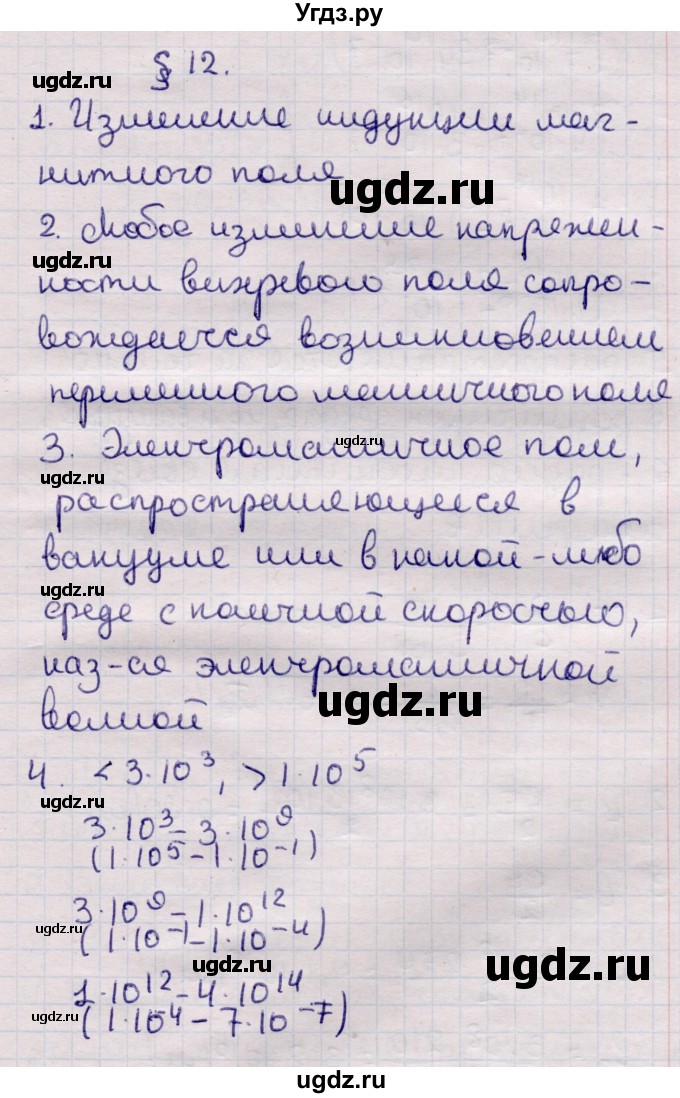 Угдз.ру
ugdz.ru
§ 12.
1. Изменение индукции маг-
нитного поля
ugdz.ru
2. Любое изменение напряжен-
ugdz.ru
ности вихревого поля сопро-
вождается возникновением
переменного магнитного поля
ugdz.ru
3. Электромагнитное поле,
ugdz.ru
распространяющееся в
вакууме или в какой-либо
ugdz.ru
среде с конечной скоростью,
наз-ся электромагнитной
ugdz.ru
волной
4. < 3·10³, > 1·10⁵
ugdz.ru
3·10³ – 3·10⁹
(1·10⁵ – 1·10⁻¹)
3·10⁹ – 1·10¹²
ugdz.ru
ugdz.ru
(1·10⁻¹ – 1·10⁻⁴)
ugdz.ru
1·10¹² – 4·10¹⁴
ugdz.ru
(1·10⁴ – 7·10⁻⁷)
ugdz.ru